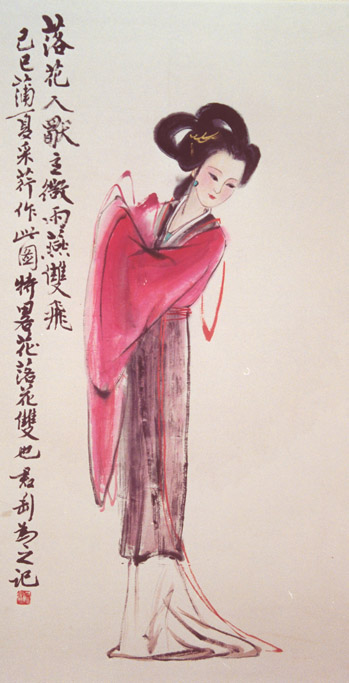 落花人獣立微雨燕雙飛
己巳蒲夏采荷作此圖特畧花落花雙也君利為之記